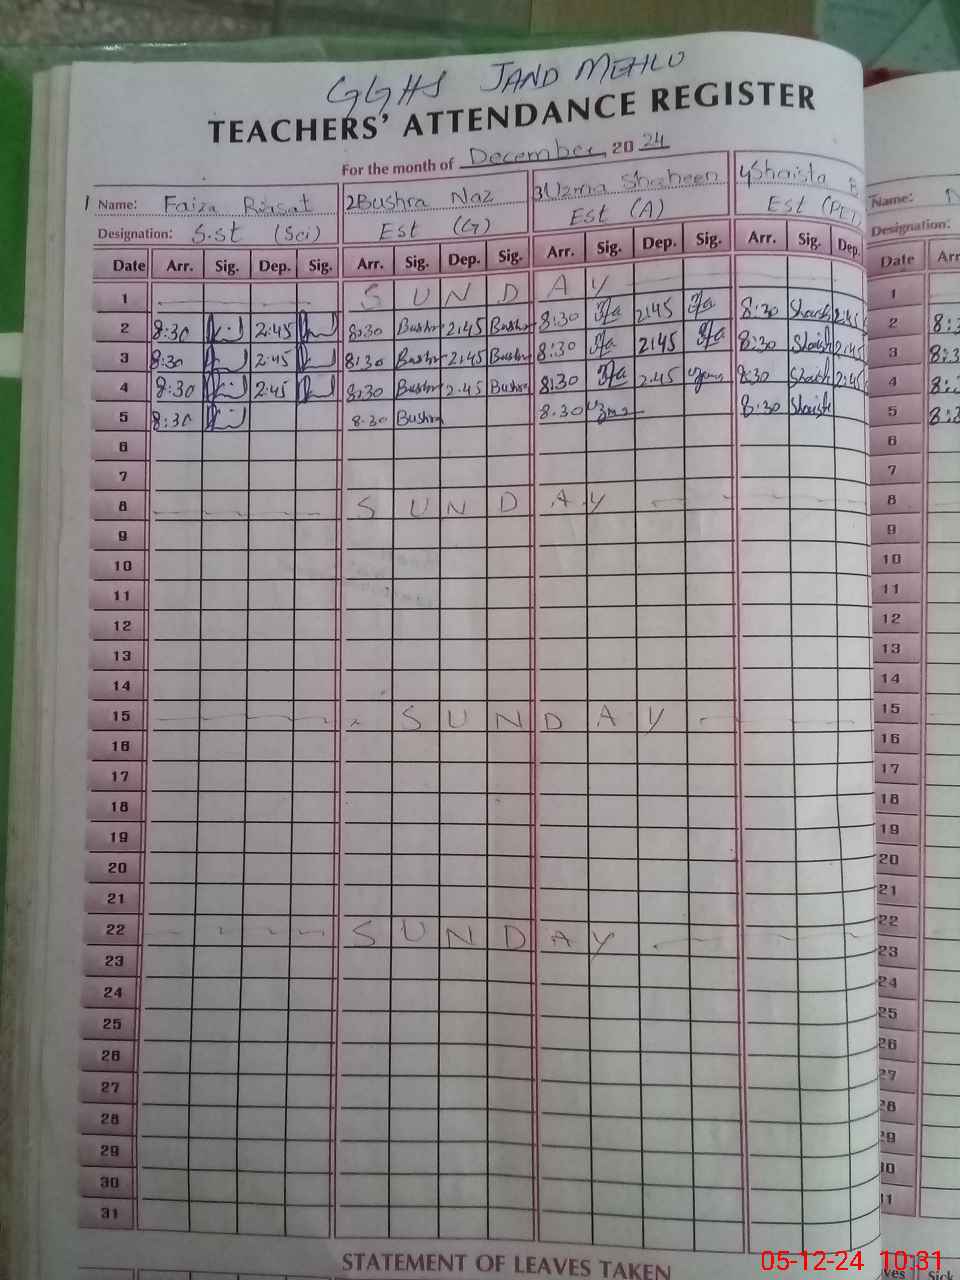 GGHS JAND MEHLU
TEACHERS' ATTENDANCE REGISTER
For the month of December 20 24
1 Name: Faiza Riasat 2 Bushra Naz 3 Uzma Shaheen 4 Shaista B Name: N
Designation: S.st (Sci) Est (G) Est (A) Est (PET) Designation:
Date Arr. Sig. Dep. Sig. Arr. Sig. Dep. Sig. Arr. Sig. Dep. Sig. Arr. Sig. Dep. Date Arr
1 S U N D A Y 1
2 8:30 2:45 8:30 Bushra 2:45 Bushra 8:30 2:45 8:30 Shaista 2:45 2 8:3
3 8:30 2:45 8:30 Bushra 2:45 Bushra 8:30 2:45 8:30 Shaista 2:45 3 8:3
4 8:30 2:45 8:30 Bushra 2:45 Bushra 8:30 2:45 Uzma 8:30 Shaista 2:45 4 8:3
5 8:30 8:30 Bushra 8:30 Uzma 8:30 Shaista 5 8:3
6 6
7 7
8 S U N D A Y 8
9 9
10 10
11 11
12 12
13 13
14 14
15 S U N D A Y 15
16 16
17 17
18 18
19 19
20 20
21 21
22 S U N D A Y 22
23 23
24 24
25 25
26 26
27 27
28 28
29 29
30 30
31 31
STATEMENT OF LEAVES TAKEN
05-12-24 10:31
Sick